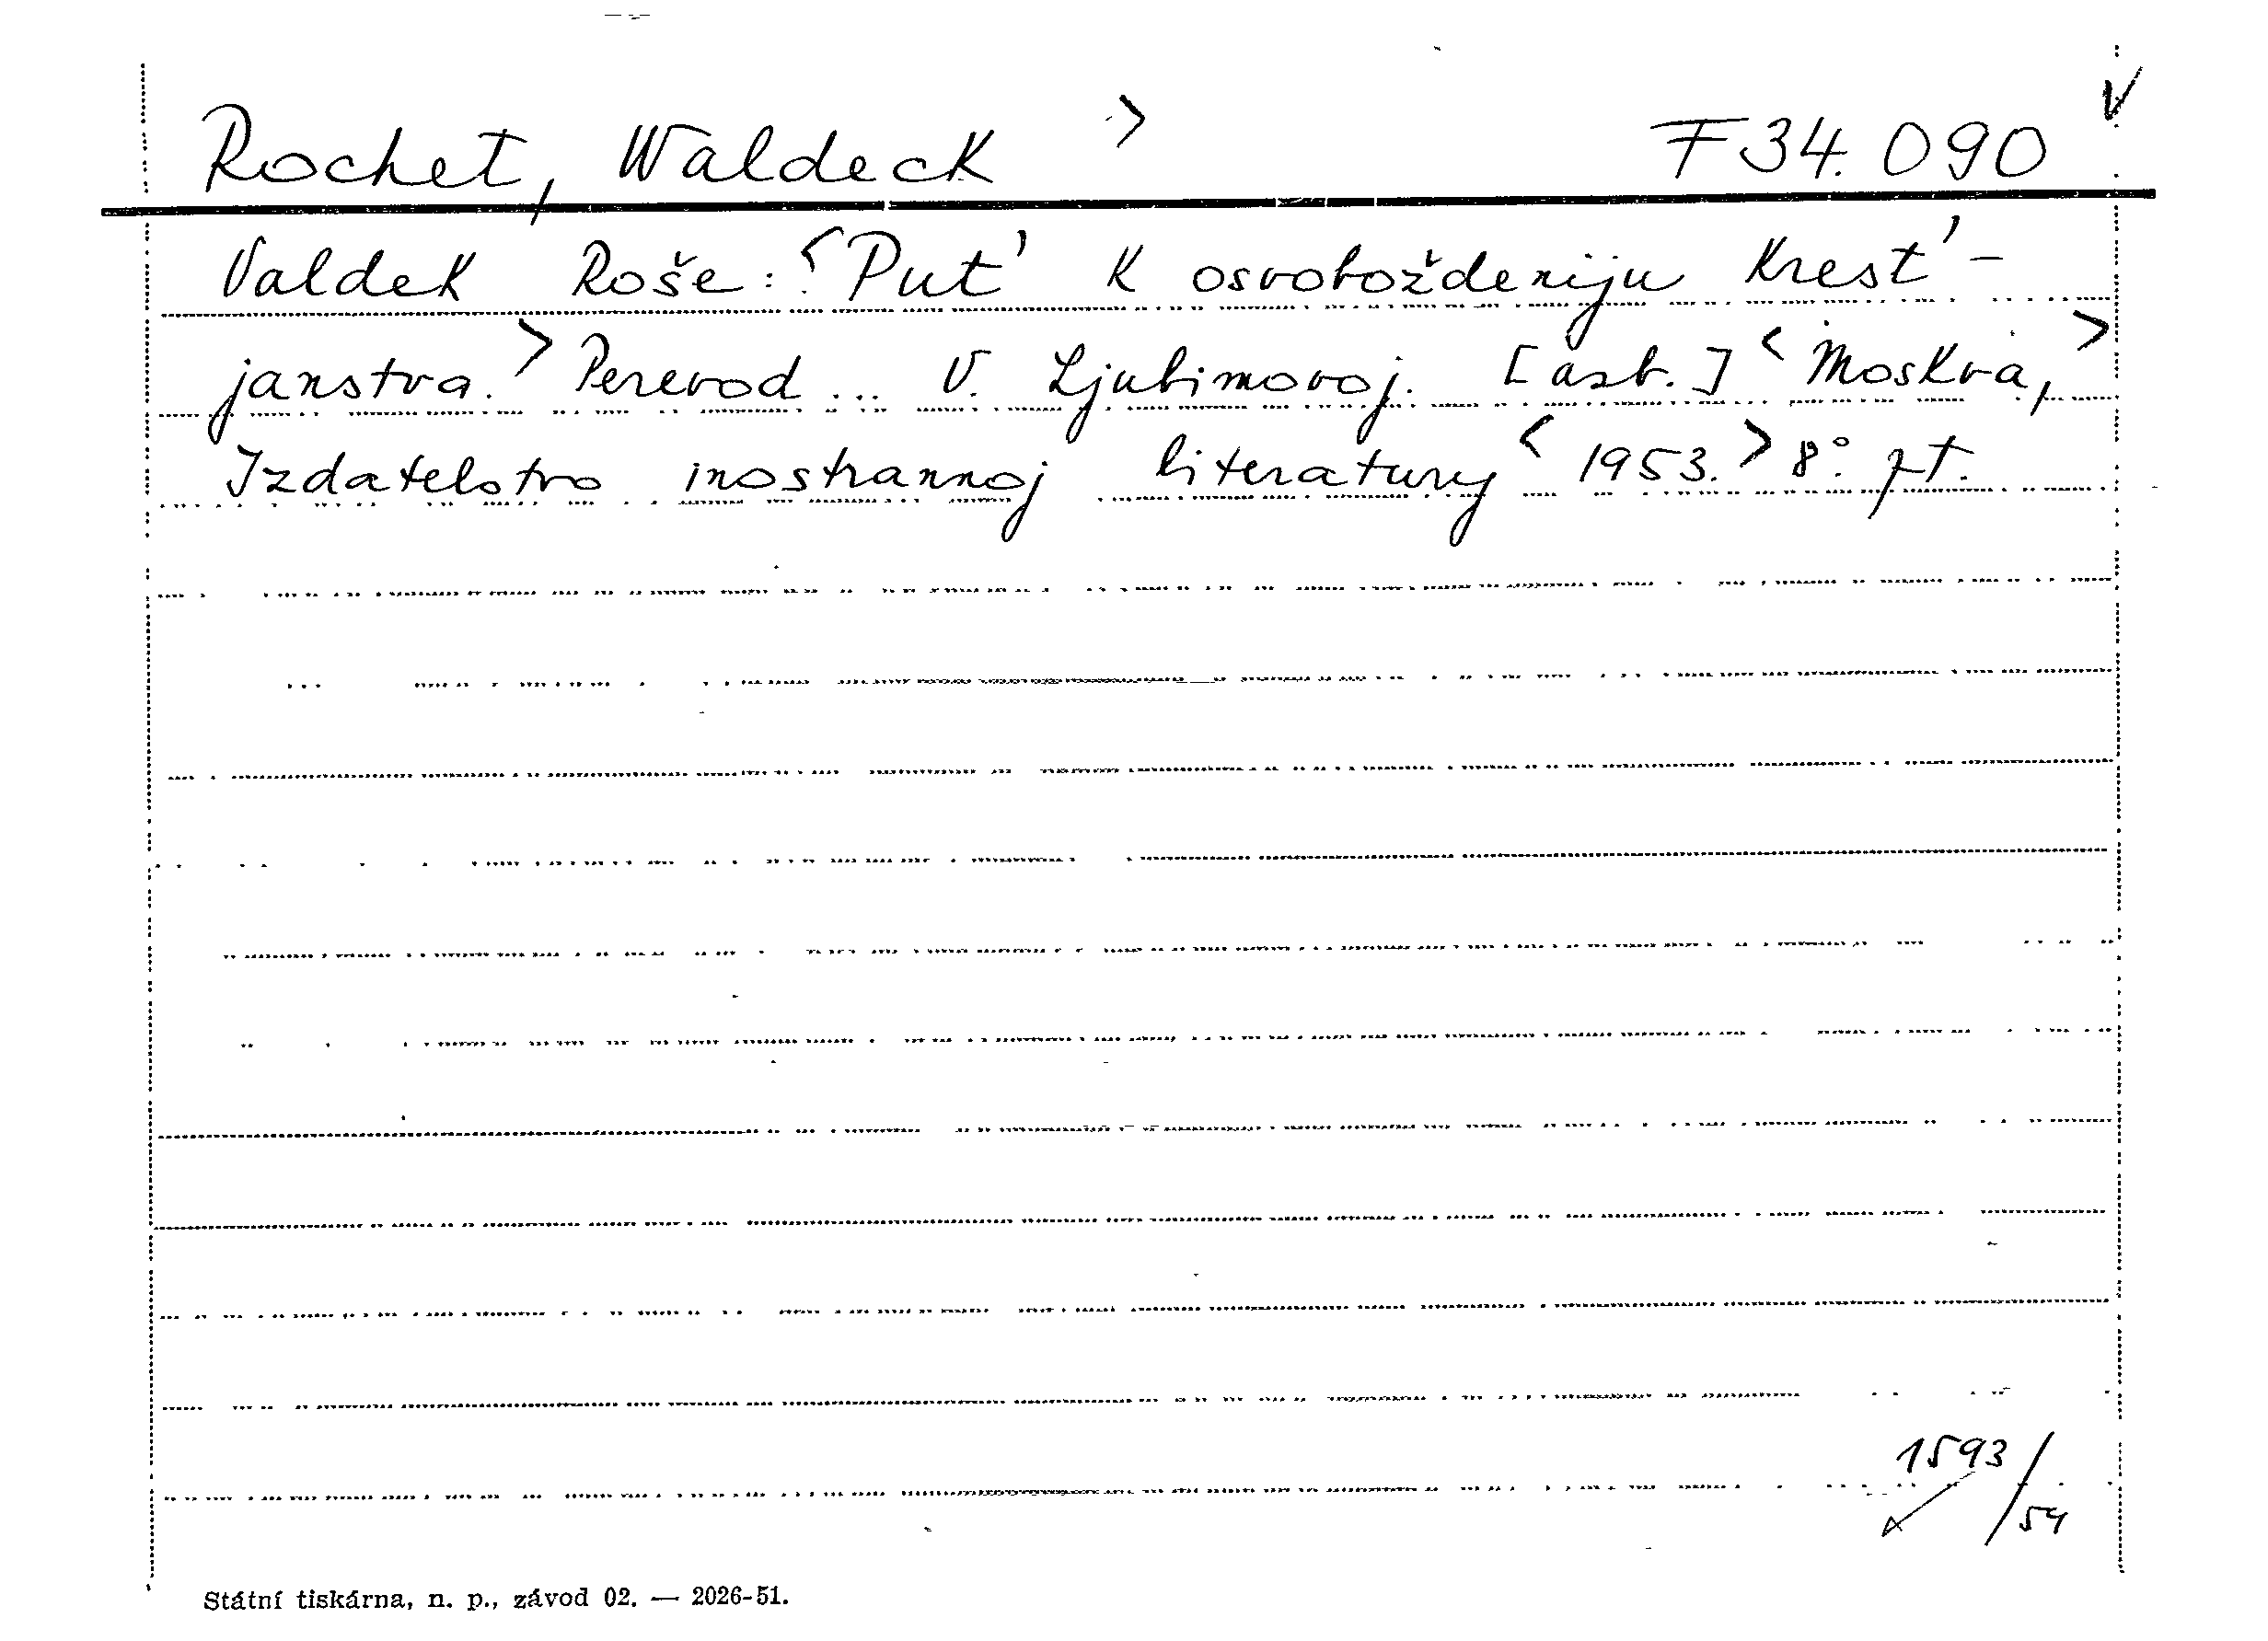 Rochet, Waldeck > F 34.090 V
Valdek Roše: <Put' k osvoboždeniju krest'-
janstva.> Perevod ... V. Ljubimovoj. [azb.] <Moskva,>
Izdatelstvo inostrannoj literatury <1953.> 8°. pt.
1593/
54
Státní tiskárna, n. p., závod 02. — 2026-51.